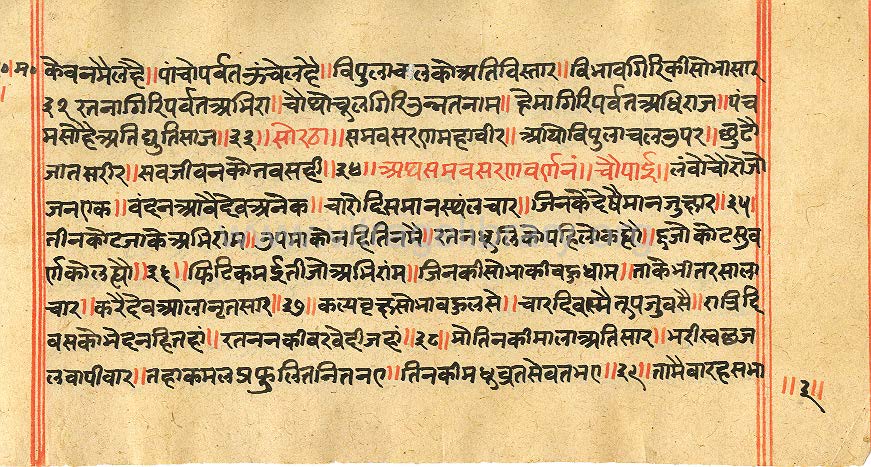 कैवनमैलहै॥पांचोपर्वतऊंचेलेहै॥विपुलाचलकोअतिविस्तार॥विभावगिरिकीसोभासार
३२ रतनागिरिपर्वतअभिरा॥चौथोचूलगिरिउन्नतनाम॥हेमागिरिपर्वतअधिराज॥पंच
मसोहैअतिद्युतिसाज॥३३॥सोरठा॥समवसरणमहावीर॥आयोविपुलाचलउपर॥छुटौ
जातसरीर॥सवजीवनकौतवसही॥३४॥अथसमवसरणवर्णनं॥चौपाई॥लंवोचोरोजो
जनएक॥वंदनआवैदेवअनेक॥चारोदिसमानस्थंलचार॥जिनकैदेषैमानजुहार॥३५॥
तीनकोटजाकेअभिराम॥उपमाकोनहितिनमै॥रतनधूलकोपहिलोकहौ॥दूजोकोटसुव
र्णकोलह्यौ॥३६॥फिटिकमईतीजोअभिरांम॥जिनकीसोभाकीवहुधाम॥ताकेभीतरसाला
चार॥करैदेवआलानृतसार॥३७॥कल्पवृक्षसोभावहुलसे॥चारदिवसमै तूपजुवसै॥रात्रिदि
वसकोभेदनहितहां॥रतननकीवरवेदीजहां॥३८॥मोतिनकीमालाअतिसार॥भरीस्वछज
लवापीचार॥तहाकमलप्रफुलितनितनए॥तिनकीमधुव्रतसेवतभए॥३९॥तामैवारहसभा
॥३॥